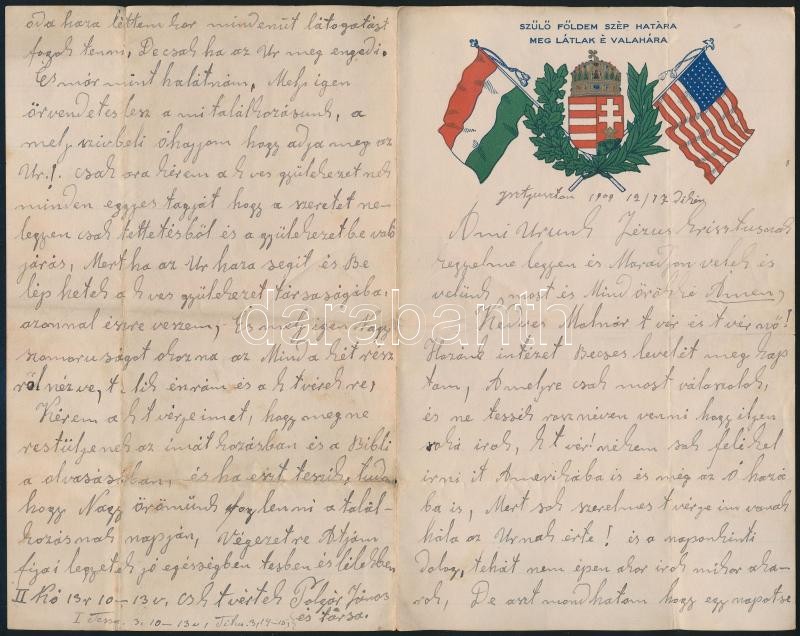 oda haza léttem kor mindenüt látogatást
fogok tenni, De csak ha az Ur meg engedi.
És már mint ha látnám, Mely igen
örvendetes lesz a mi találkozásunk, a
mely szivbeli óhajjom hogy adja meg az
Ur! csak ara kérem a k ves gyülekezet nek
minden eggyes tagját hogy a szeretet ne-
legyen csak tettetésből és a gyülekezetbe való
járás, Mert ha az Ur haza segit és Be
lép hetek a k ves gyülekezet társaságába.
azonnal észre veszem, És mely igen nagy
szomoruságot okozna az Mind a két rész
ről nézve, t. lik én rám és a k t vérek re,
Kérem a k t vérjeimet, hogy meg ne
restüljenek az imát kozásban és a Bibli
a olvasásában, és ha ezt teszik, tudom
hogy Nagy örömünk fog lenni a talál-
kozásnak napján, Végezetre Atjám
fijai legyetek jó egésségben tesben és lélekben
II Kó 13r 10–13v. csk t vértek Tolgör János
I Tessa. 3. 10–13v, és társa.
SZÜLŐ FÖLDEM SZÉP HATÁRA
MEG LÁTLAK É VALAHÁRA
1909 12/17 dikén
A mi Urunk Jézus krisztusnak
kegyelme legyen és Maradjon veletek és
velünk, most és Mind örökké Amen,
Kedves Molnár t vér és t vér nő!
Hozánk intézet Becses levelét meg kap
tam, Amelyre csak most válaszolok,
és ne tessék rosz néven venni hogy ilyen
soká irok, k t vér! nékem sok felé kel
irni it Amerikába is és még az Ó hazá
ba is, Mert sok szerelmes t vérje im vanak
hála az Urnak érte! is a naponkénti
dolog, tehát nem épen akor irok mikor aka-
rok, De aszt mondhatom hogy egy napot se
darabanth